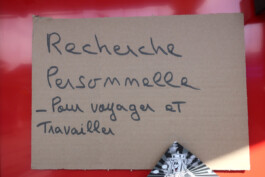 Recherche
Personnelle
- Pour voyager et
Travailler